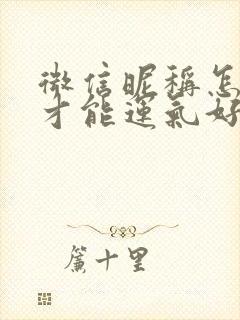 微信昵称怎
才能运气好
帘十里